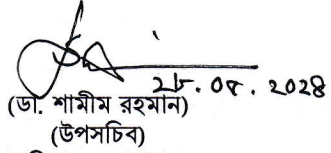 ২৮.০৫.২০২৪
(ডা. শামীম রহমান)
(উপসচিব)